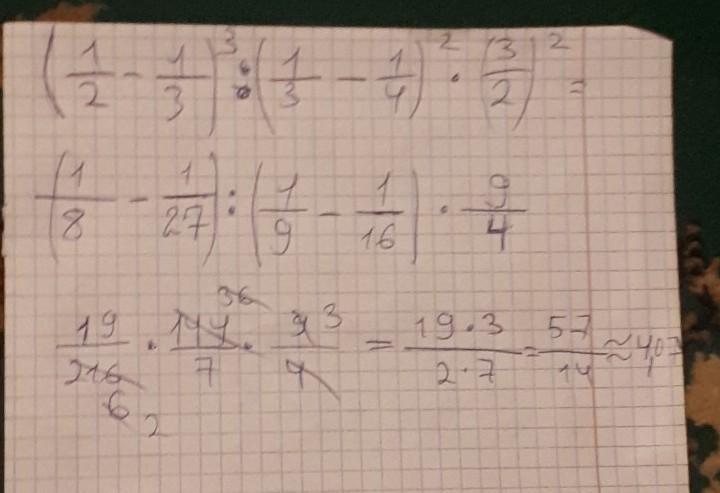 (1/2 - 1/3)^3 : (1/3 - 1/4)^2 · (3/2)^2 =
(1/8 - 1/27) : (1/9 - 1/16) · 9/4
19/216 6 2 · 144 36/7 · 9 3/4 = 19·3/2·7 = 57/14 ≈ 4,07